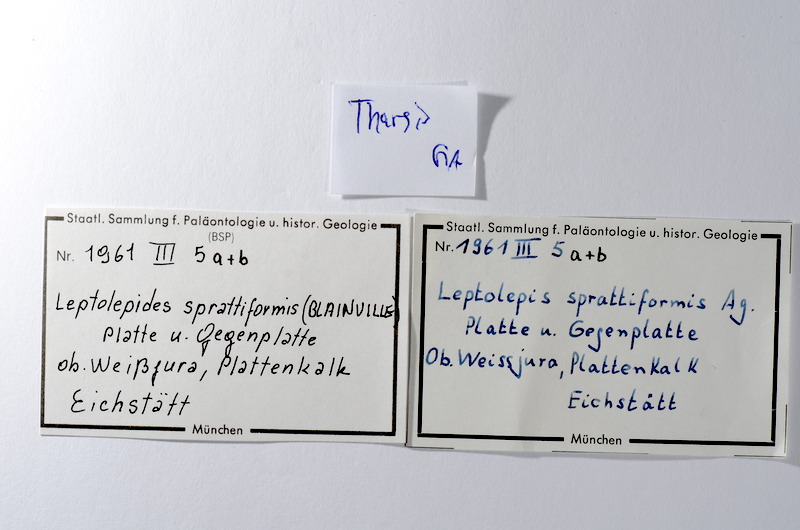 Tharsis
GA
Staatl. Sammlung f. Paläontologie u. histor. Geologie
(BSP)
Nr. 1961 III 5 a+b
Leptolepides sprattiformis (BLAINVILLE)
Platte u. Gegenplatte
ob. Weißjura, Plattenkalk
Eichstätt
München
Staatl. Sammlung f. Paläontologie u. histor. Geologie
Nr. 1961 III 5 a+b
Leptolepis sprattiformis Ag.
Platte u. Gegenplatte
Ob. Weissjura, Plattenkalk
Eichstätt
München